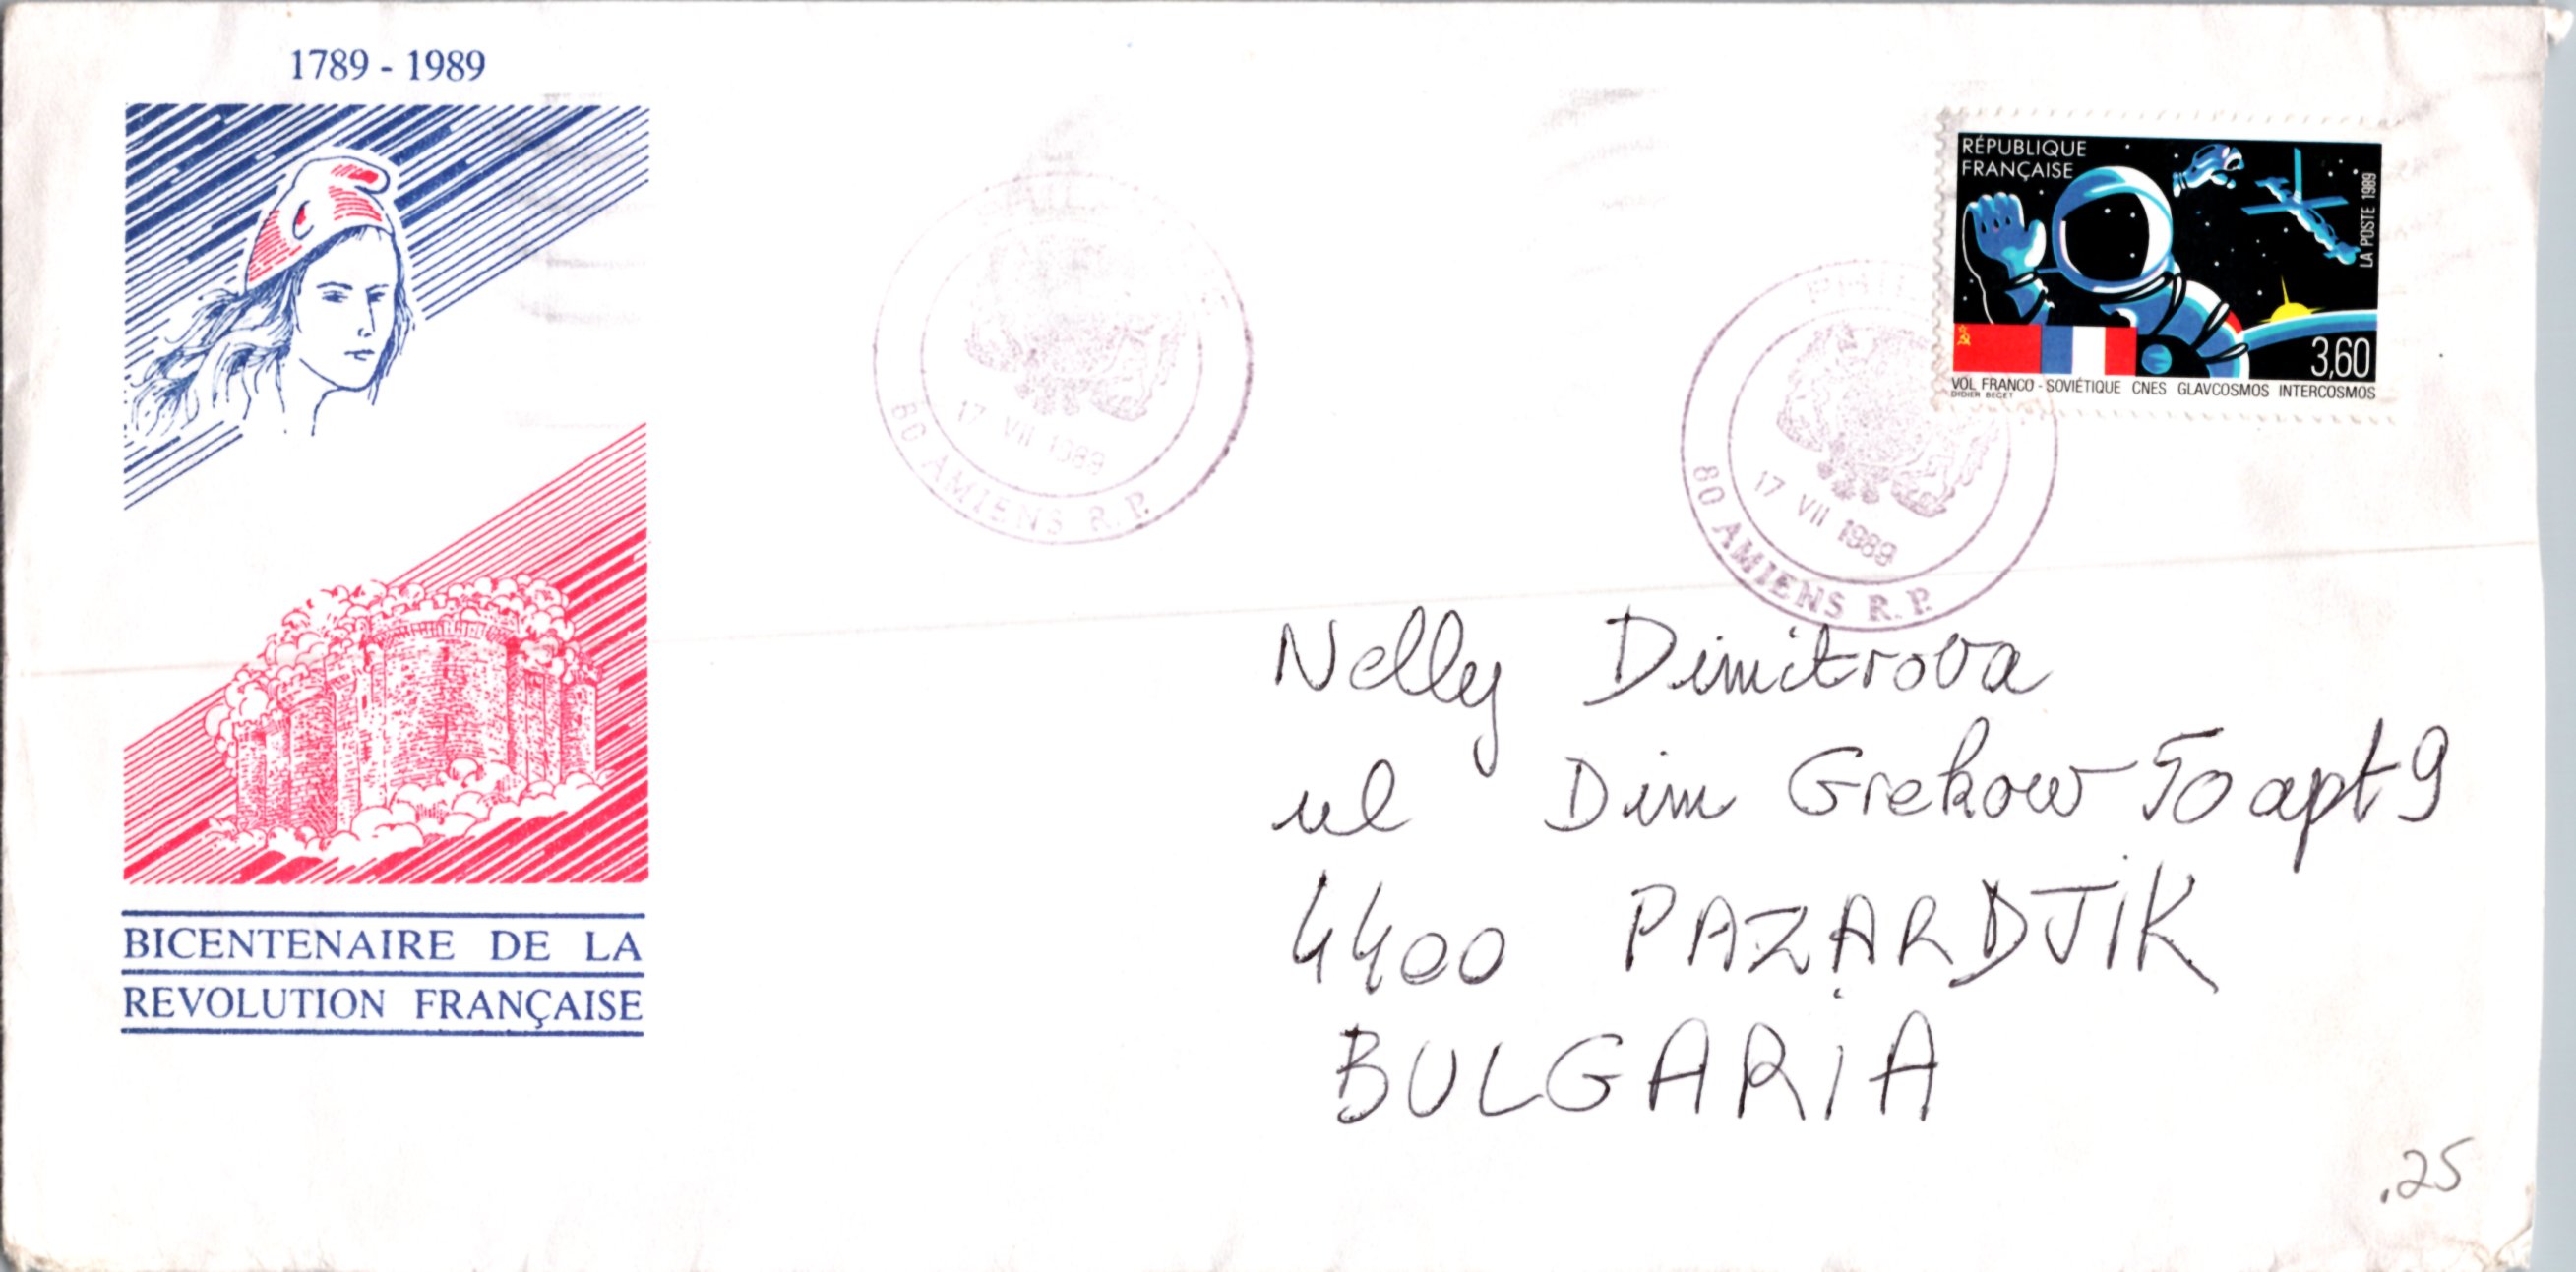 1789 - 1989
BICENTENAIRE DE LA
REVOLUTION FRANÇAISE
17 VII 1989
80 AMIENS R.P.
17 VII 1989
80 AMIENS R.P.
RÉPUBLIQUE
FRANÇAISE
LA POSTE 1989
3,60
VOL FRANCO-SOVIÉTIQUE CNES GLAVCOSMOS INTERCOSMOS
DIDIER BECET
Nelly Dimitrova
ul Dim Grekow 50 apt 9
4400 PAZARDJIK
BULGARIA
.25